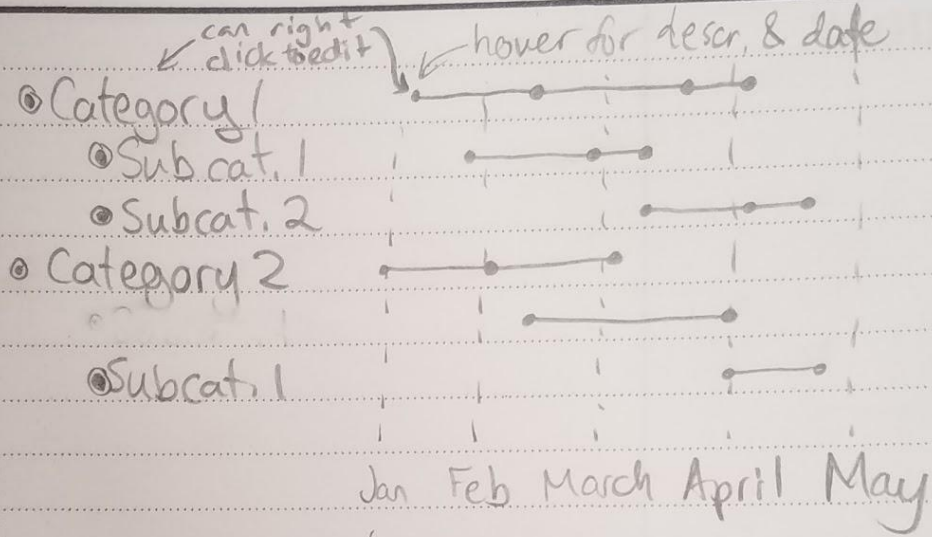 can right
click to edit
hover for descr. & date
Category 1
Subcat. 1
Subcat. 2
Category 2
Subcat. 1
Jan Feb March April May